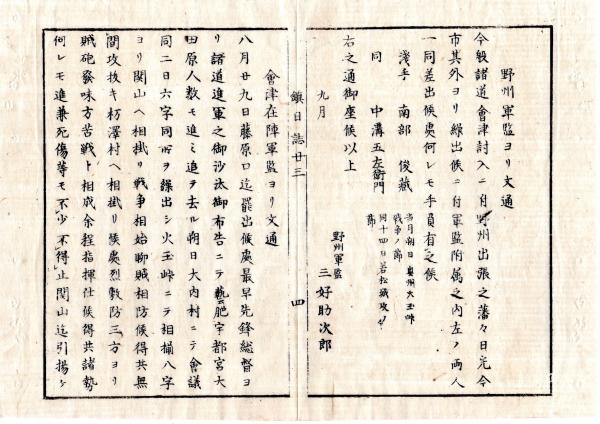 野州軍監ヨリ文通
今般諸道會津討入ニ付野州出張之藩々日光今
市其外ヨリ繰出候ニ付軍監附属之内左ノ両人
一同差出候處何レモ手負有之候
淺手 南部 俊藏
當月朔日奥州大玉峠
戦争ノ節
同 中溝五左衛門
同十四日若松城攻ノ
節
右之通御座候以上
九月
野州軍監
三好助次郎
鎮日誌廿三
四
會津在陣軍監ヨリ文通
八月廿九日藤原口迄罷出候處最早先鋒総督ヨ
リ諸道進軍之御沙汰御布告ニテ藝肥宇都宮大
田原人数モ進ミ追テ去ル朔日大内村ニテ會議
同二日六字同所ヲ繰出シ火玉峠ニテ相揃八字
ヨリ関山ヘ相掛リ戦争相始聊賊相防候得共無
間攻抜キ栃澤村ヘ相掛リ候處烈敷防三方ヨリ
賊砲發味方苦戦ト相成余程指揮仕候得共諸勢
何レモ進兼死傷等モ不少不得止関山迄引揚シ